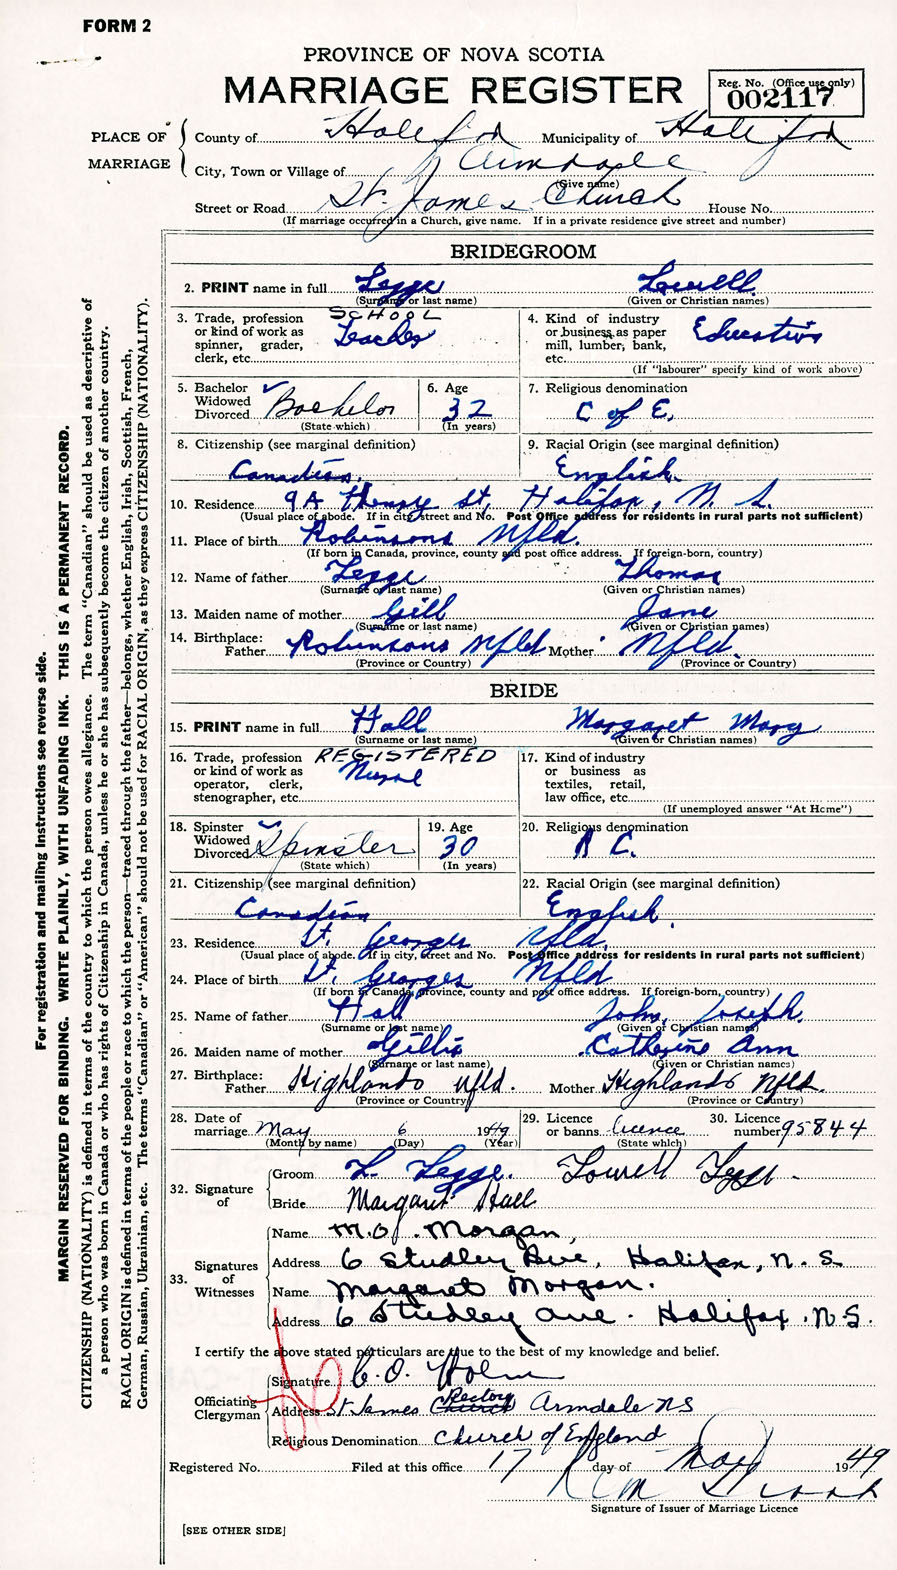 FORM 2
PROVINCE OF NOVA SCOTIA
MARRIAGE REGISTER
Reg. No. (Office use only)
002117
PLACE OF MARRIAGE
County of Halifax Municipality of Halifax
City, Town or Village of Armdale
(Give name)
Street or Road St. James Church House No.
(If marriage occurred in a Church, give name. If in a private residence give street and number)
BRIDEGROOM
2. PRINT name in full Legge Lowell
(Surname or last name) (Given or Christian names)
3. Trade, profession or kind of work as spinner, grader, clerk, etc. SCHOOL Teacher
4. Kind of industry or business as paper mill, lumber, bank, etc. Education
(If "labourer" specify kind of work above)
5. Bachelor Widowed Divorced Bachelor
(State which)
6. Age 32
(In years)
7. Religious denomination C of E.
8. Citizenship (see marginal definition) Canadian
9. Racial Origin (see marginal definition) English.
10. Residence 9A Henry St, Halifax, N. S.
(Usual place of abode. If in city, street and No. Post Office address for residents in rural parts not sufficient)
11. Place of birth Robinsons Nfld.
(If born in Canada, province, county and post office address. If foreign-born, country)
12. Name of father Legge Thomas
(Surname or last name) (Given or Christian names)
13. Maiden name of mother Gill Jane
(Surname or last name) (Given or Christian names)
14. Birthplace: Father Robinsons Nfld Mother Nfld.
(Province or Country) (Province or Country)
BRIDE
15. PRINT name in full Hall Margaret Mary
(Surname or last name) (Given or Christian names)
16. Trade, profession or kind of work as operator, clerk, stenographer, etc. REGISTERED Nurse
17. Kind of industry or business as textiles, retail, law office, etc.
(If unemployed answer "At Home")
18. Spinster Widowed Divorced Spinster
(State which)
19. Age 30
(In years)
20. Religious denomination R C.
21. Citizenship (see marginal definition) Canadian
22. Racial Origin (see marginal definition) English.
23. Residence St. Georges Nfld.
(Usual place of abode. If in city, street and No. Post Office address for residents in rural parts not sufficient)
24. Place of birth St. Georges Nfld
(If born in Canada, province, county and post office address. If foreign-born, country)
25. Name of father Hall John Joseph.
(Surname or last name) (Given or Christian names)
26. Maiden name of mother Gillis Catherine Ann
(Surname or last name) (Given or Christian names)
27. Birthplace: Father Highlands Nfld. Mother Highlands Nfld.
(Province or Country) (Province or Country)
28. Date of marriage May 6 1949
(Month by name) (Day) (Year)
29. Licence or banns licence
(State which)
30. Licence number 95844
32. Signature of
Groom L. Legge. Lowell Legge
Bride Margaret Hall
33. Signatures of Witnesses
Name M.O. Morgan,
Address 6 Studley Ave, Halifax, N. S.
Name Margaret Morgan.
Address 6 Studley Ave. Halifax. N.S.
I certify the above stated particulars are true to the best of my knowledge and belief.
Officiating Clergyman
Signature C.O. Holm
Address St James Church Rectory Armdale NS
Religious Denomination Church of England
Registered No. Filed at this office 17 day of May 1949
Signature of Issuer of Marriage Licence
[SEE OTHER SIDE]
For registration and mailing instructions see reverse side.
MARGIN RESERVED FOR BINDING. WRITE PLAINLY, WITH UNFADING INK. THIS IS A PERMANENT RECORD.
CITIZENSHIP (NATIONALITY) is defined in terms of the country to which the person owes allegiance. The term "Canadian" should be used as descriptive of
a person who was born in Canada or who has rights of Citizenship in Canada, unless he or she has subsequently become the citizen of another country.
RACIAL ORIGIN is defined in terms of the people or race to which the person—traced through the father—belongs, whether English, Irish, Scottish, French,
German, Russian, Ukrainian, etc. The terms "Canadian" or "American" should not be used for RACIAL ORIGIN, as they express CITIZENSHIP (NATIONALITY).